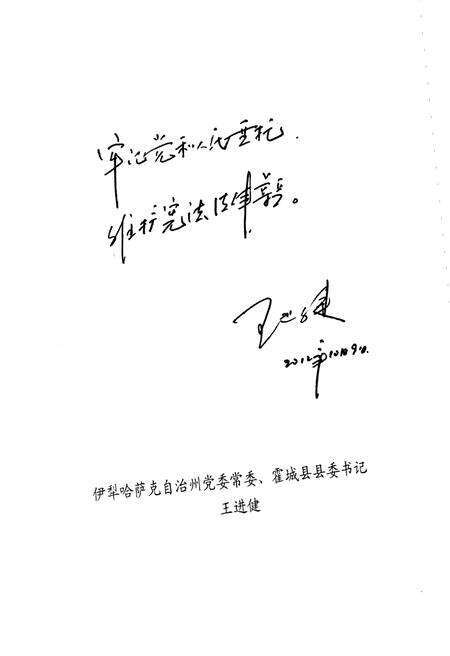 牢记党和人民重托.
维护宪法法律尊严。
王进健
2012年10月9日.
伊犁哈萨克自治州党委常委、霍城县县委书记
王进健